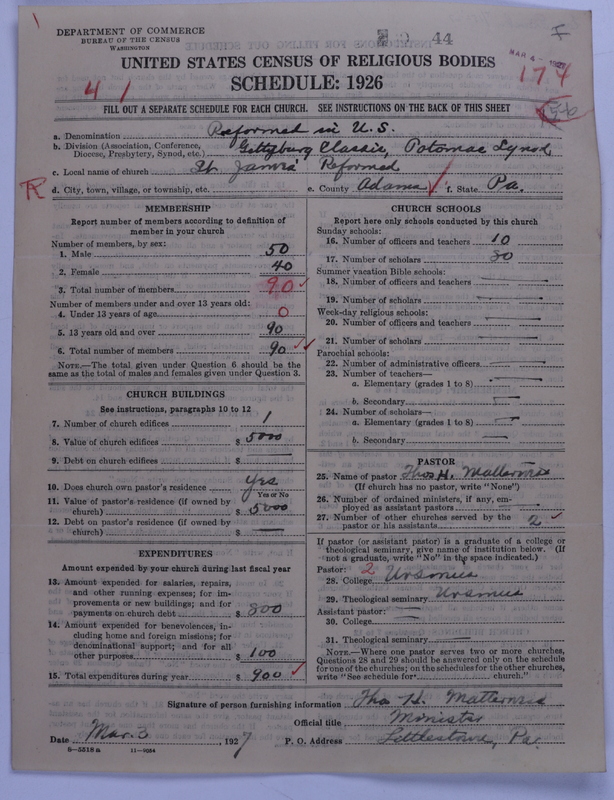 DEPARTMENT OF COMMERCE
BUREAU OF THE CENSUS
WASHINGTON
44
MAR 4 - 1927
UNITED STATES CENSUS OF RELIGIOUS BODIES
SCHEDULE: 1926
41
17.4
FILL OUT A SEPARATE SCHEDULE FOR EACH CHURCH. SEE INSTRUCTIONS ON THE BACK OF THIS SHEET
a. Denomination Reformed in U.S.
b. Division (Association, Conference, Diocese, Presbytery, Synod, etc.) Gettysburg Classis, Potomac Synod
c. Local name of church St. James Reformed
R d. City, town, village, or township, etc. e. County Adams f. State Pa.
MEMBERSHIP
Report number of members according to definition of
member in your church
Number of members, by sex:
1. Male 50
2. Female 40
3. Total number of members 90
Number of members under and over 13 years old:
4. Under 13 years of age 0
5. 13 years old and over 90
6. Total number of members 90
NOTE.—The total given under Question 6 should be the
same as the total of males and females given under Question 3.
CHURCH BUILDINGS
See instructions, paragraphs 10 to 12
7. Number of church edifices 1
8. Value of church edifices $ 5000
9. Debt on church edifices $
10. Does church own pastor's residence Yes
Yes or No
11. Value of pastor's residence (if owned by
church) $ 5000
12. Debt on pastor's residence (if owned by
church) $
EXPENDITURES
Amount expended by your church during last fiscal year
13. Amount expended for salaries, repairs,
and other running expenses; for im-
provements or new buildings; and for
payments on church debt $ 800
14. Amount expended for benevolences, in-
cluding home and foreign missions; for
denominational support; and for all
other purposes $ 100
15. Total expenditures during year $ 900
CHURCH SCHOOLS
Report here only schools conducted by this church
Sunday schools:
16. Number of officers and teachers 10
17. Number of scholars 80
Summer vacation Bible schools:
18. Number of officers and teachers
19. Number of scholars
Week-day religious schools:
20. Number of officers and teachers
21. Number of scholars
Parochial schools:
22. Number of administrative officers
23. Number of teachers—
a. Elementary (grades 1 to 8)
b. Secondary
24. Number of scholars—
a. Elementary (grades 1 to 8)
b. Secondary
PASTOR
25. Name of pastor Thos H. Matterness
(If church has no pastor, write "None")
26. Number of ordained ministers, if any, em-
ployed as assistant pastors
27. Number of other churches served by the
pastor or his assistants 2
If pastor (or assistant pastor) is a graduate of a college or
theological seminary, give name of institution below. (If
not a graduate, write "No" in the space indicated.)
Pastor: 2
28. College Ursinus
29. Theological seminary Ursinus
Assistant pastor:
30. College
31. Theological seminary
NOTE.—Where one pastor serves two or more churches,
Questions 28 and 29 should be answered only on the schedule
for one of the churches; on the schedules for the other churches,
write "See schedule for church."
Signature of person furnishing information Tho H. Matterness
Official title Minister
Date Mar. 3, 1927 P. O. Address Littlestown, Pa.
8-5318 a 11-9054